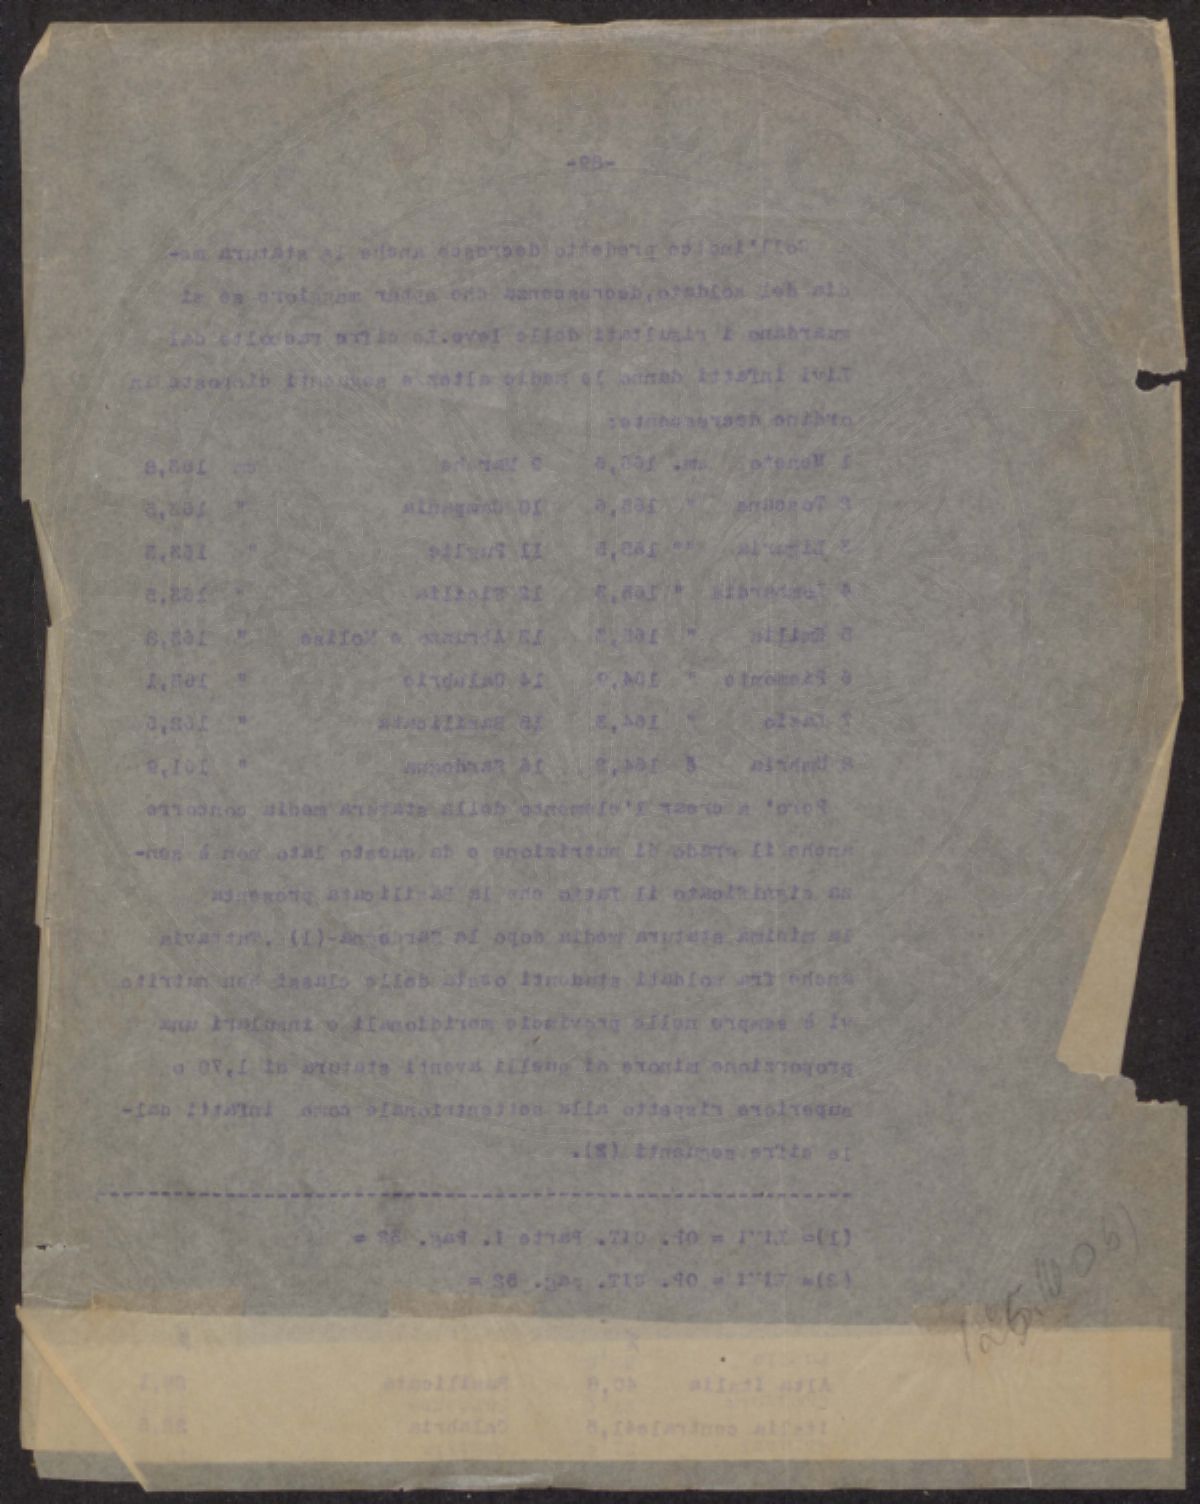 -89-
Coll'indice predetto decresce anche la statura me-
dia del soldato, decrescenza che appar maggiore se si
guardano i risultati delle leve. Le cifre raccolte dal
Livi infatti danno le medie e seguenti disposte in
ordine decrescente:
1 Veneto cm. 166,6 9 Marche cm 163,8
2 Toscana " 165,6 10 Campania " 163,5
3 Liguria "" 165,5 11 Puglie " 163,5
4 Lombardia " 165,3 12 Sicilia " 163,5
5 Emilia " 165,3 13 Abruzzo e Molise " 163,3
6 Piemonte " 164,9 14 Calabrie " 163,1
7 Lazio " 164,3 15 Basilicata " 162,5
8 Umbria 164,2 16 Sardegna " 161,9
Pero' a crear l'elemento della statura media concorre
anche il grado di nutrizione e da questo lato non è sen-
za significato il fatto che la Basilicata presenta
la minima statura media dopo la Sardegna-(1) .Tuttavia
anche fra soldati studenti ossia delle classi ben nutrite
vi è sempre nelle provincie meridionali e insulari una
proporzione minore di quelli aventi statura di 1,70 o
superiore rispetto alla settentrionale come infatti dal-
le cifre seguenti (2).
(1)= LIVI = OP. CIT. Parte I. Pag. =
(2)= LIVI = OP. CIT. pag. 52 =
Alta Italia 40,8 Basilicata
Italia centrale 41,5 Calabria